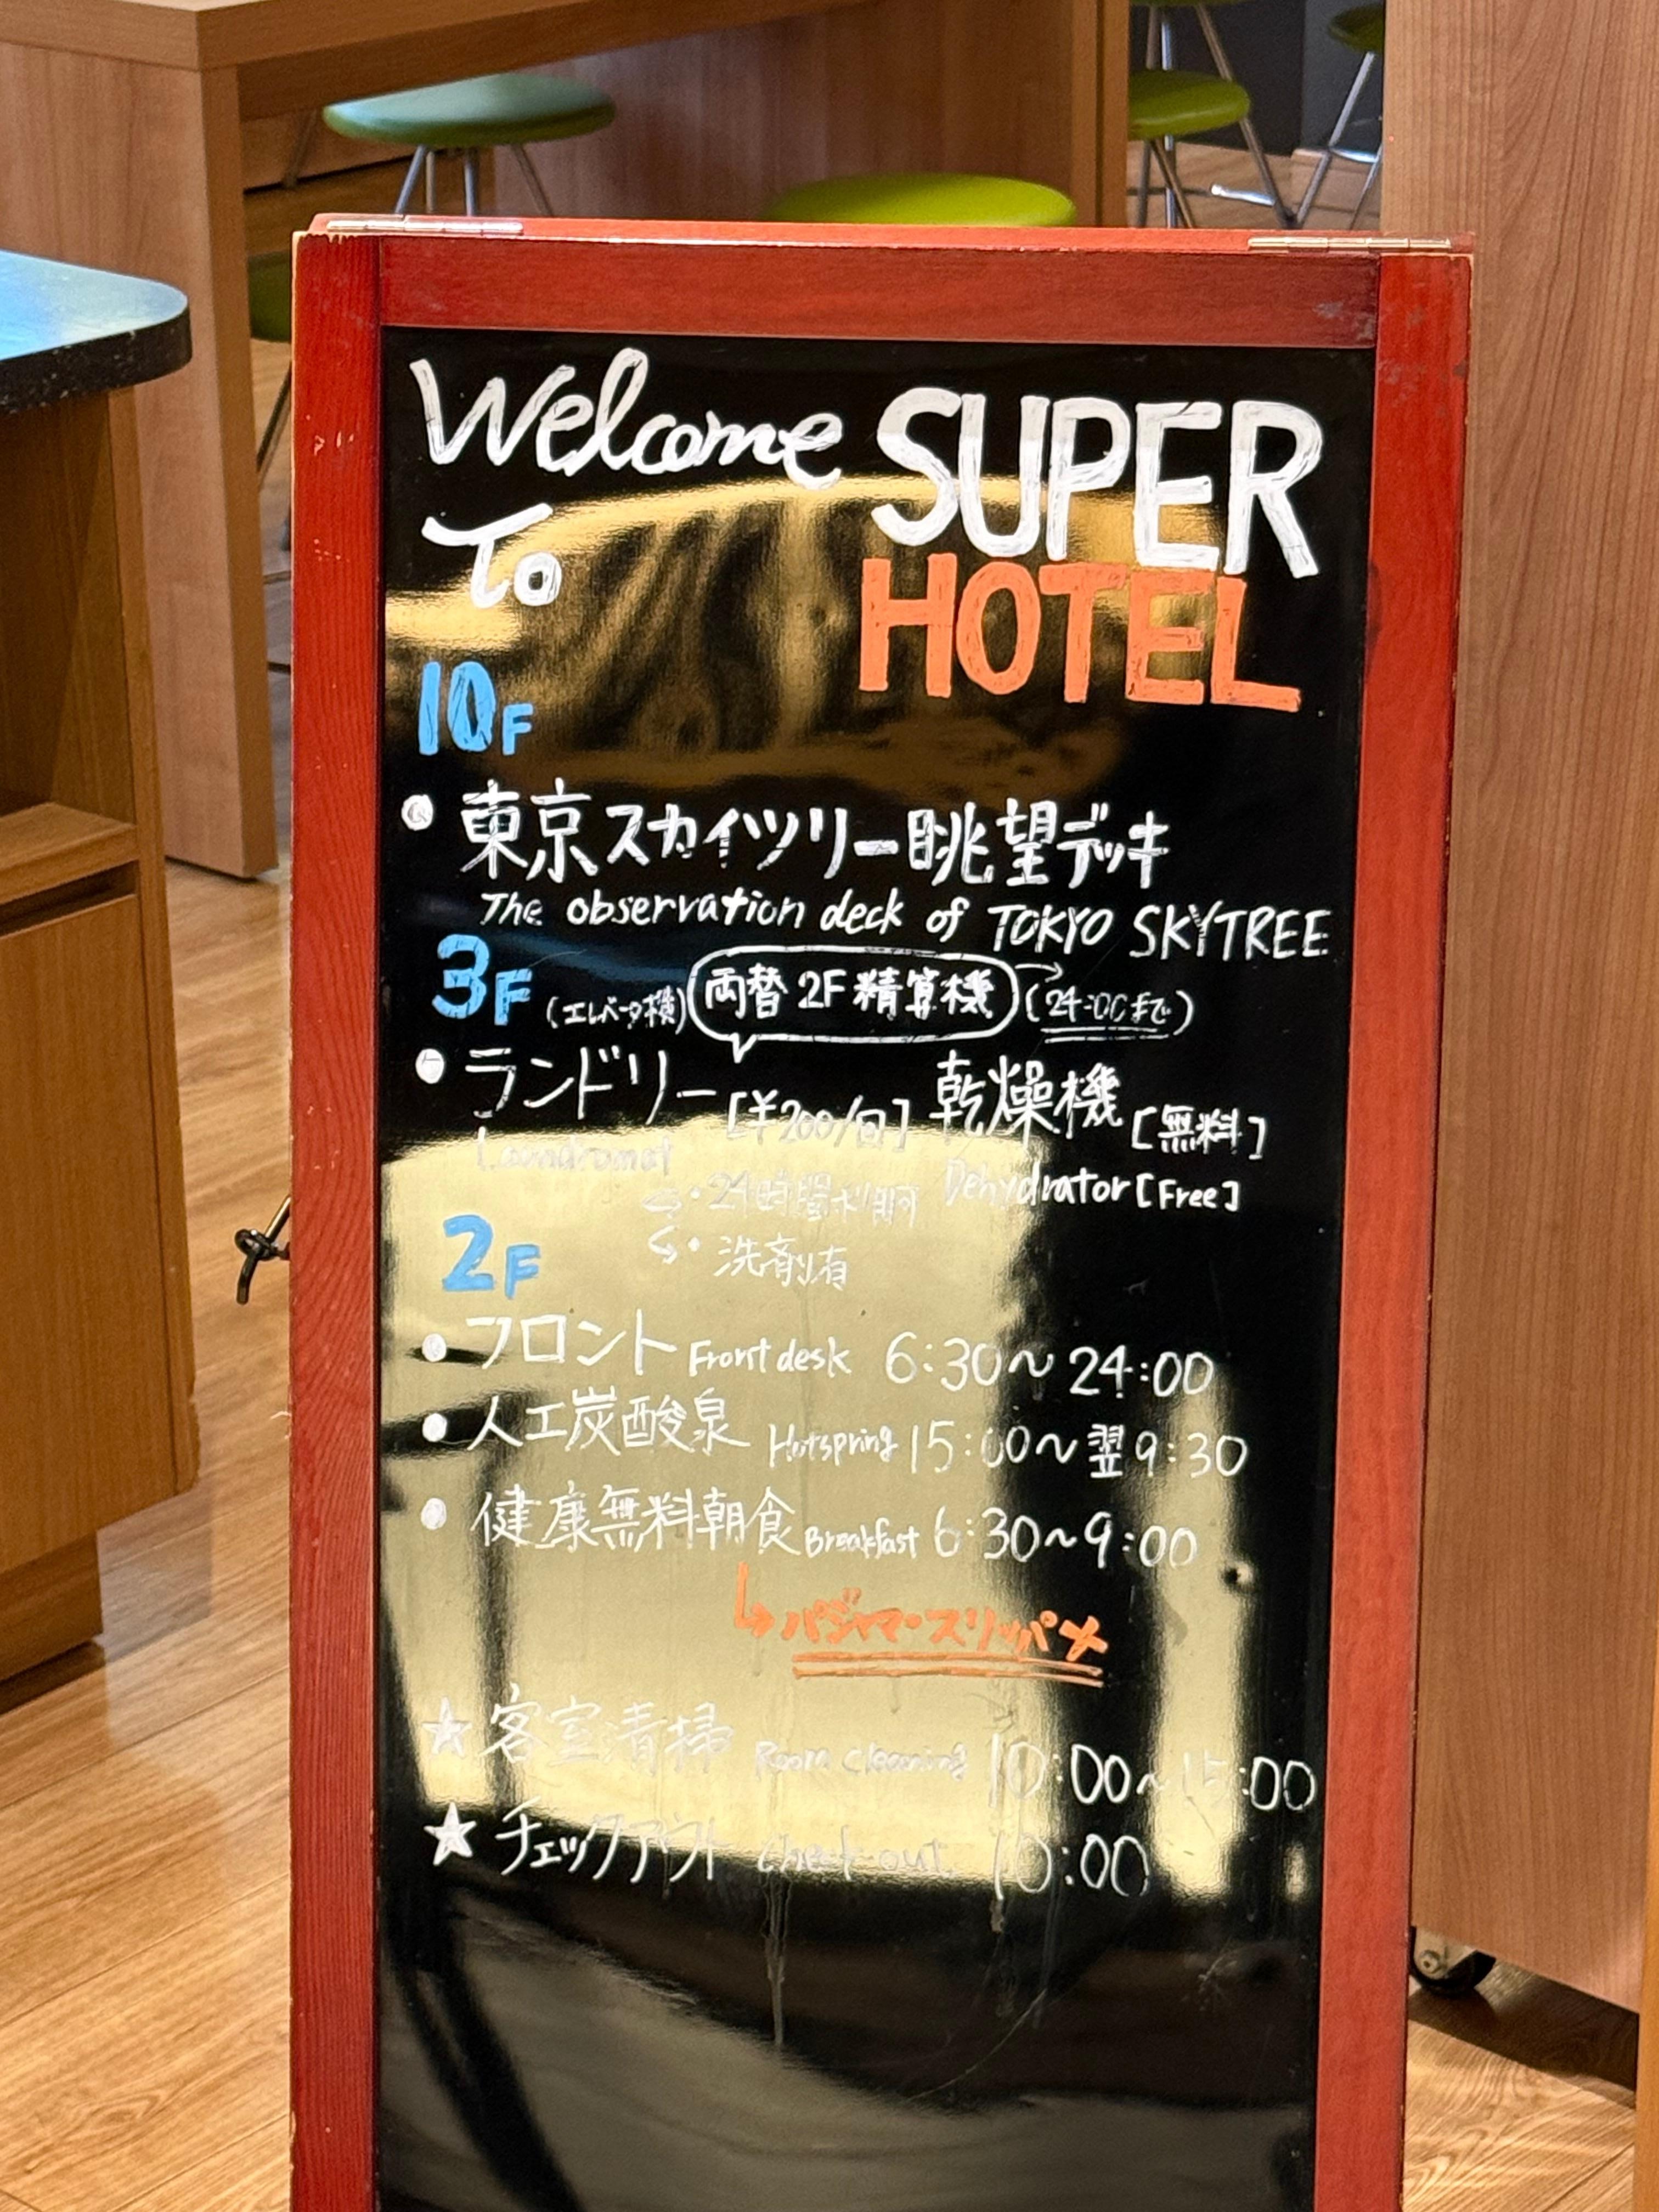 Welcome SUPER
To HOTEL
10F
• 東京スカイツリー眺望デッキ
The observation deck of TOKYO SKYTREE
3F (エレベータ横) 両替 2F 精算機 → (24:00まで)
• ランドリー [¥200/回] 乾燥機 [無料]
Laundromat Dehydrator [Free]
・24時間利用可
2F
・洗剤有
• フロント Front desk 6:30～24:00
• 人工炭酸泉 Hotspring 15:00～翌9:30
• 健康無料朝食 Breakfast 6:30～9:00
↳ パジャマ・スリッパ✗
★ 客室清掃 Room cleaning 10:00～15:00
★ チェックアウト check-out 10:00